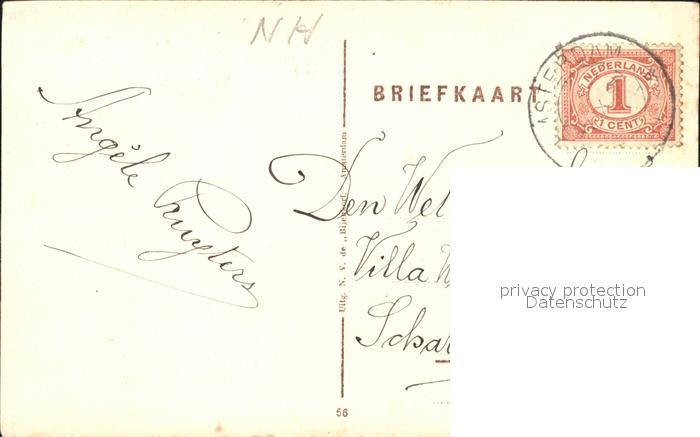 NH
BRIEFKAART
NEDERLAND
1
1 CENT
Angèle
Ruyters
Den Wel
Villa
Uitg. N. V. de „Bijenkorf" Amsterdam
privacy protection
Datenschutz
56